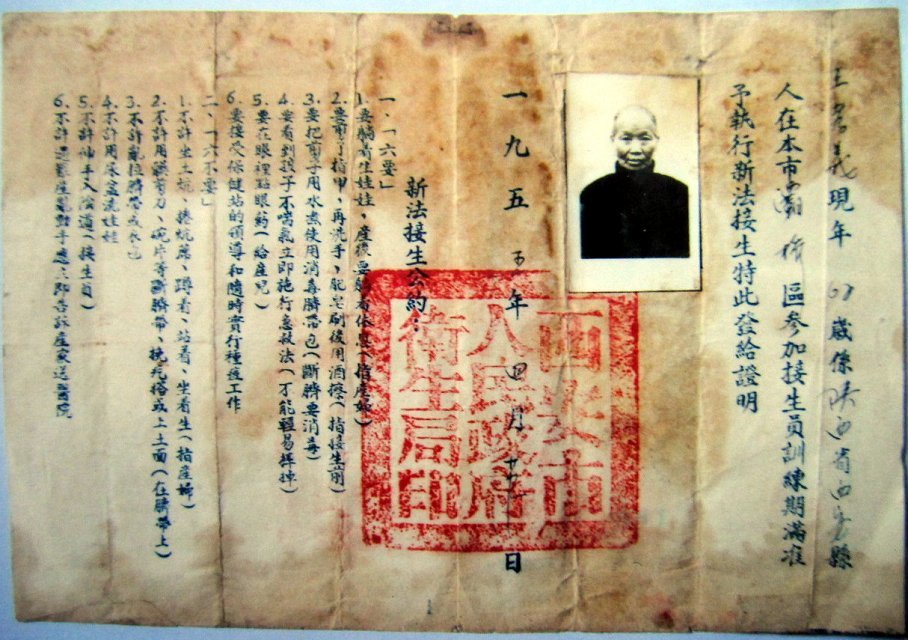 現年 歲係陝西省西安縣
人在本市 區參加接生員訓練期滿准
予執行新法接生特此發給證明
一九五五年四月 日
西安市
人民政府
衛生局印
新法接生公約：
一、「六要」
1.要躺着生娃娃、產後要 休息（指產婦）
2.要剪了指甲，再洗手，肥皂刷後用酒擦（指接生前）
3.要把剪子用水煮使用消毒臍帶包（斷臍要消毒）
4.要看到孩子不喘氣立即施行急救法（不能輕易摔掉）
5.要在眼裡點眼藥（給產兒）
6.要接受保健站的領導和隨時實行種痘工作
二、「六不要」
1.不許坐土坑、捲炕蓆、蹲着、站着、坐着生（指產婦）
2.不許用鐮有刀、碗片等斷臍帶，挽疙瘩或上土面（在臍帶上）
3.不許亂拉臍帶或衣包
4.不許用床盆洗娃娃
5.不許伸手入陰道（接生員）
6.不許遇難產亂動手應立即告訴產家送醫院